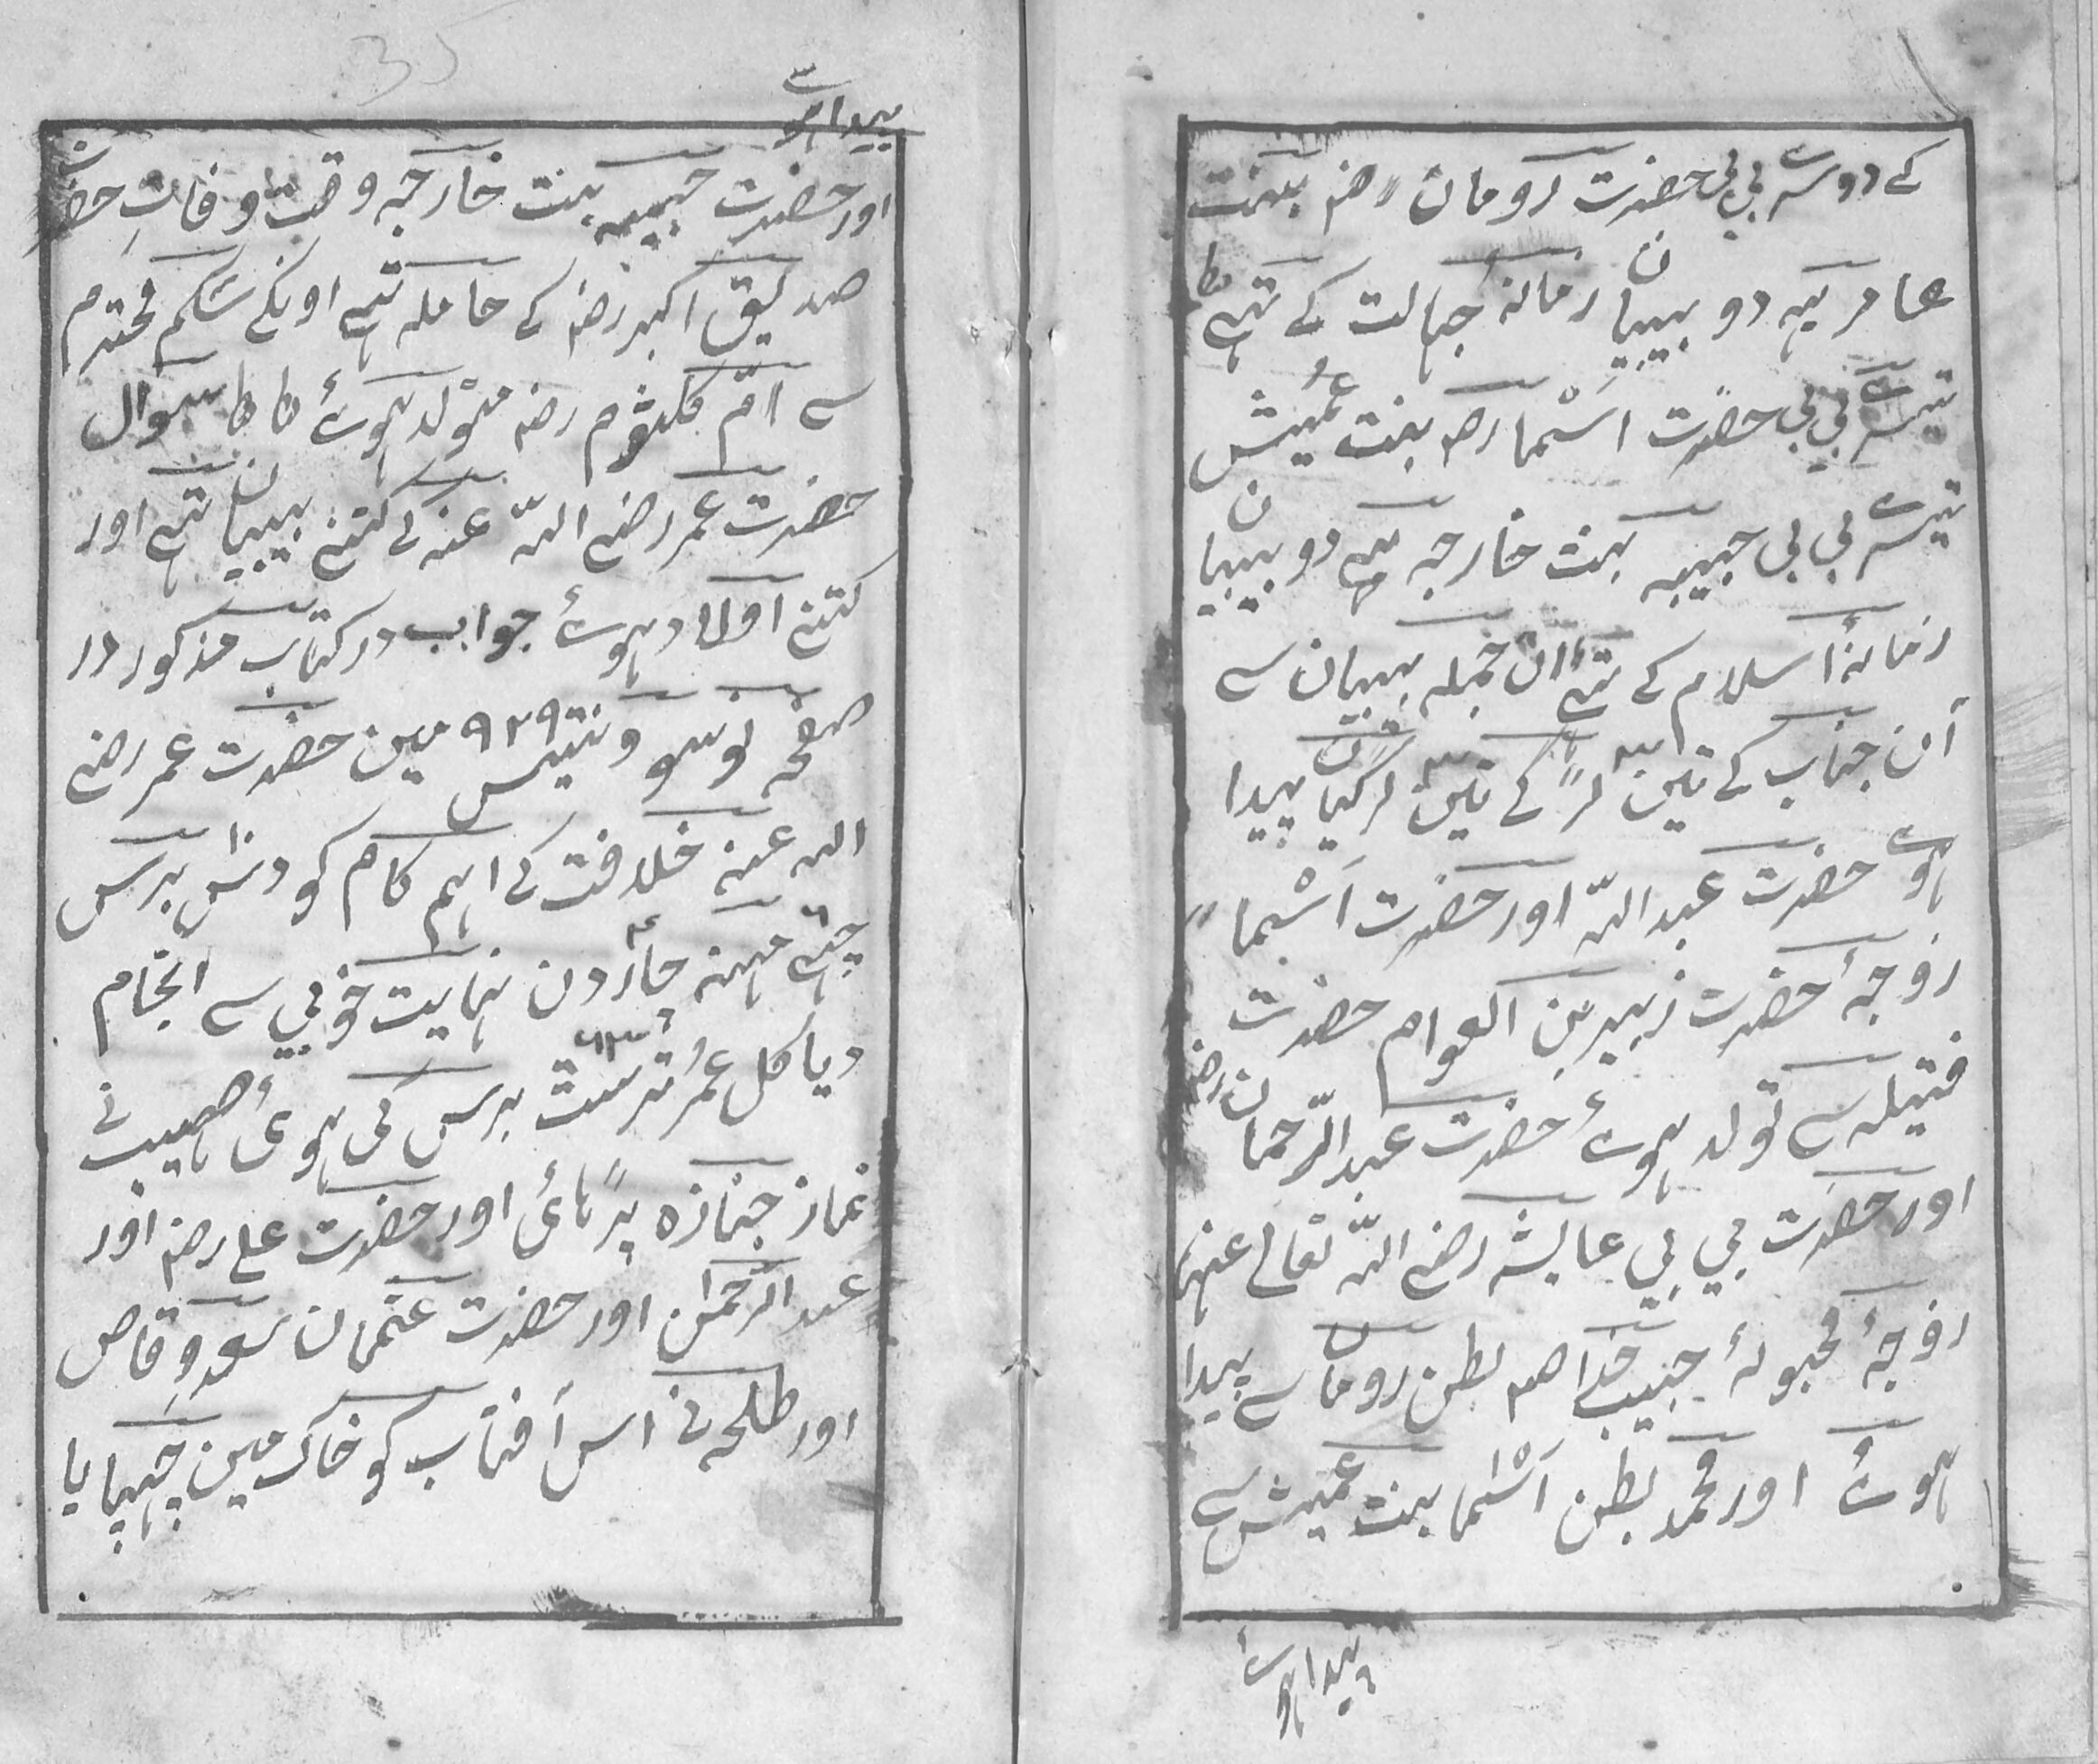 کے دوسرے بی بی حضرت رومان رض بنت
عامر یہ دو بیبیان زمانہٴ جہالت کے تہے ط
تیسرے بی بی حضرت اَسْما رض بنت عُمیْش
تیسرے بی بی حبیبہ بنت خارجہ یہے دو بیبیان
زمانہٴ اسلام کے تہے ان جملہ بیبیان سے
آن جناب کے تین لڑکے تین لڑکیان پیدا
ہوے حضرت عبداللّہ اور حضرت اَسْما
زوجہٴ حضرت زبیر بن العوام حضرت
فتیلہ سے تولد ہوےٴ حضرت عبدالرّحمان رض
اور حضرت بی بی عایشہ رضے اللّہ تعالے عنہا
زوجہٴ محبوبہٴ حبیب خدا صم بطن رومان سے پیدا
ہوےٴ اور محمد بطن اَسْما بنت عمیش سے
پیدا ہوےٴ
پیدا ہوے
اور حضرت حبیبہ بنت خارجہ وقت وفاتِ حضرت
صدیق اکبر رض کے حاملہ تہے اونکے شکم محترم
سے امّ کلثوم رض متولد ہوےٴ ط ط سوال
حضرت عمر رضے اللّہ عنہ کے کتنے بیبیان تہے اور
کتنے اولاد ہوےٴ جواب در کتاب مذکور در
صفحہ نوسو ونتیس ۹۲۹ مین حضرت عمر رضے
اللہ عنہ خلافت کے اہم کام کو دس برس
چہے مہنہ چار دن نہایت خوبی سے انجام
دیا کل عمُر ترسٹ ۶۳ برس کی ہوی صہیب نے
نماز جنازہ پڑہائی اور حضرت علے رض اور
عبدالرّحمٰن اور حضرت عثمان سعد وقاص
اور طلحہ نے اس آفتاب کو خاک مین چہپایا
35